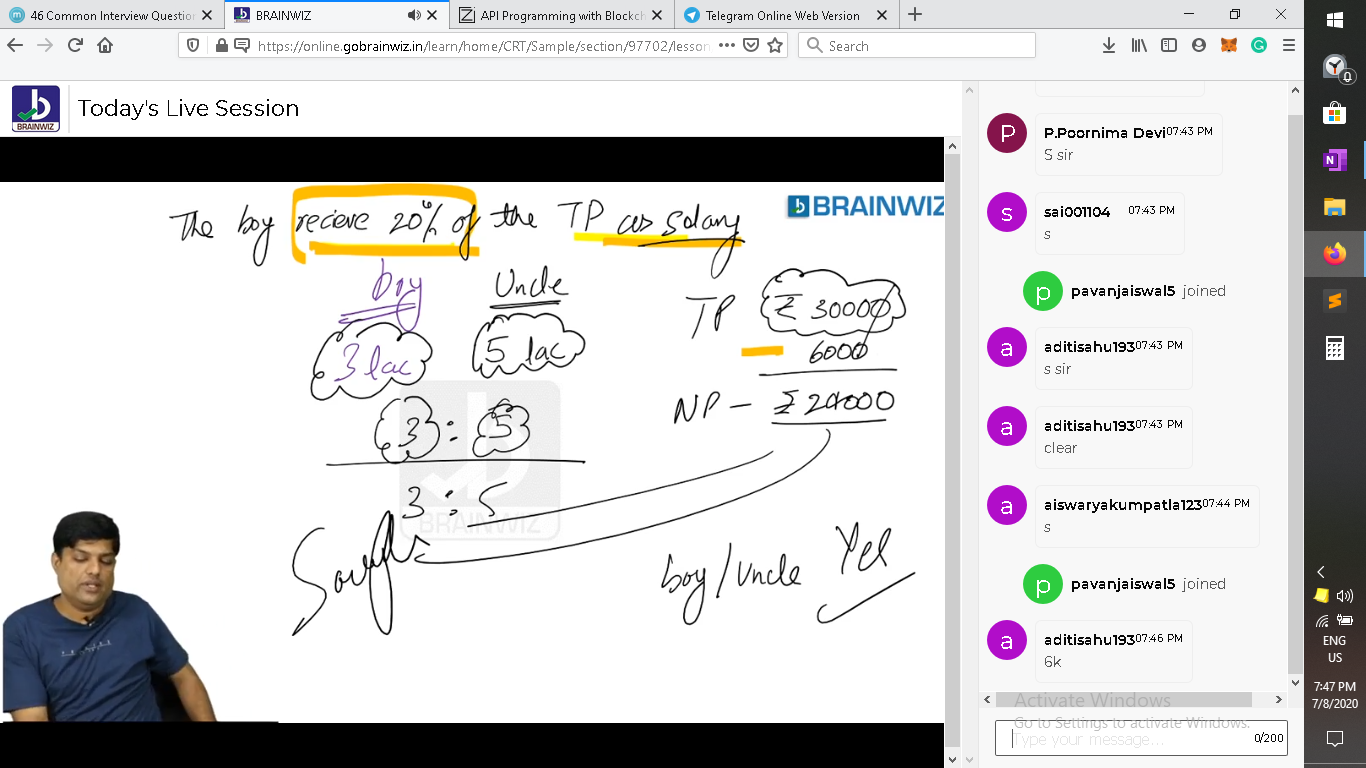 46 Common Interview Question
BRAINWIZ
API Programming with Blockch
Telegram Online Web Version
https://online.gobrainwiz.in/learn/home/CRT/Sample/section/97702/lesson
Search
BRAINWIZ
Today's Live Session
The boy recieve 20% of the TP as salary
BRAINWIZ
boy Uncle
TP ₹ 30000
3 lac 5 lac
6000
NP - ₹ 24000
3 : 5
3 : 5
BRAINWIZ
boy/Uncle Yes
P
P.Poornima Devi 07:43 PM
S sir
s
sai001104 07:43 PM
s
p
pavanjaiswal5 joined
a
aditisahu193 07:43 PM
s sir
a
aditisahu193 07:43 PM
clear
a
aiswaryakumpatla123 07:44 PM
s
p
pavanjaiswal5 joined
a
aditisahu193 07:46 PM
6k
Activate Windows
Go to Settings to activate Windows.
Type your message...
0/200
ENG
US
7:47 PM
7/8/2020